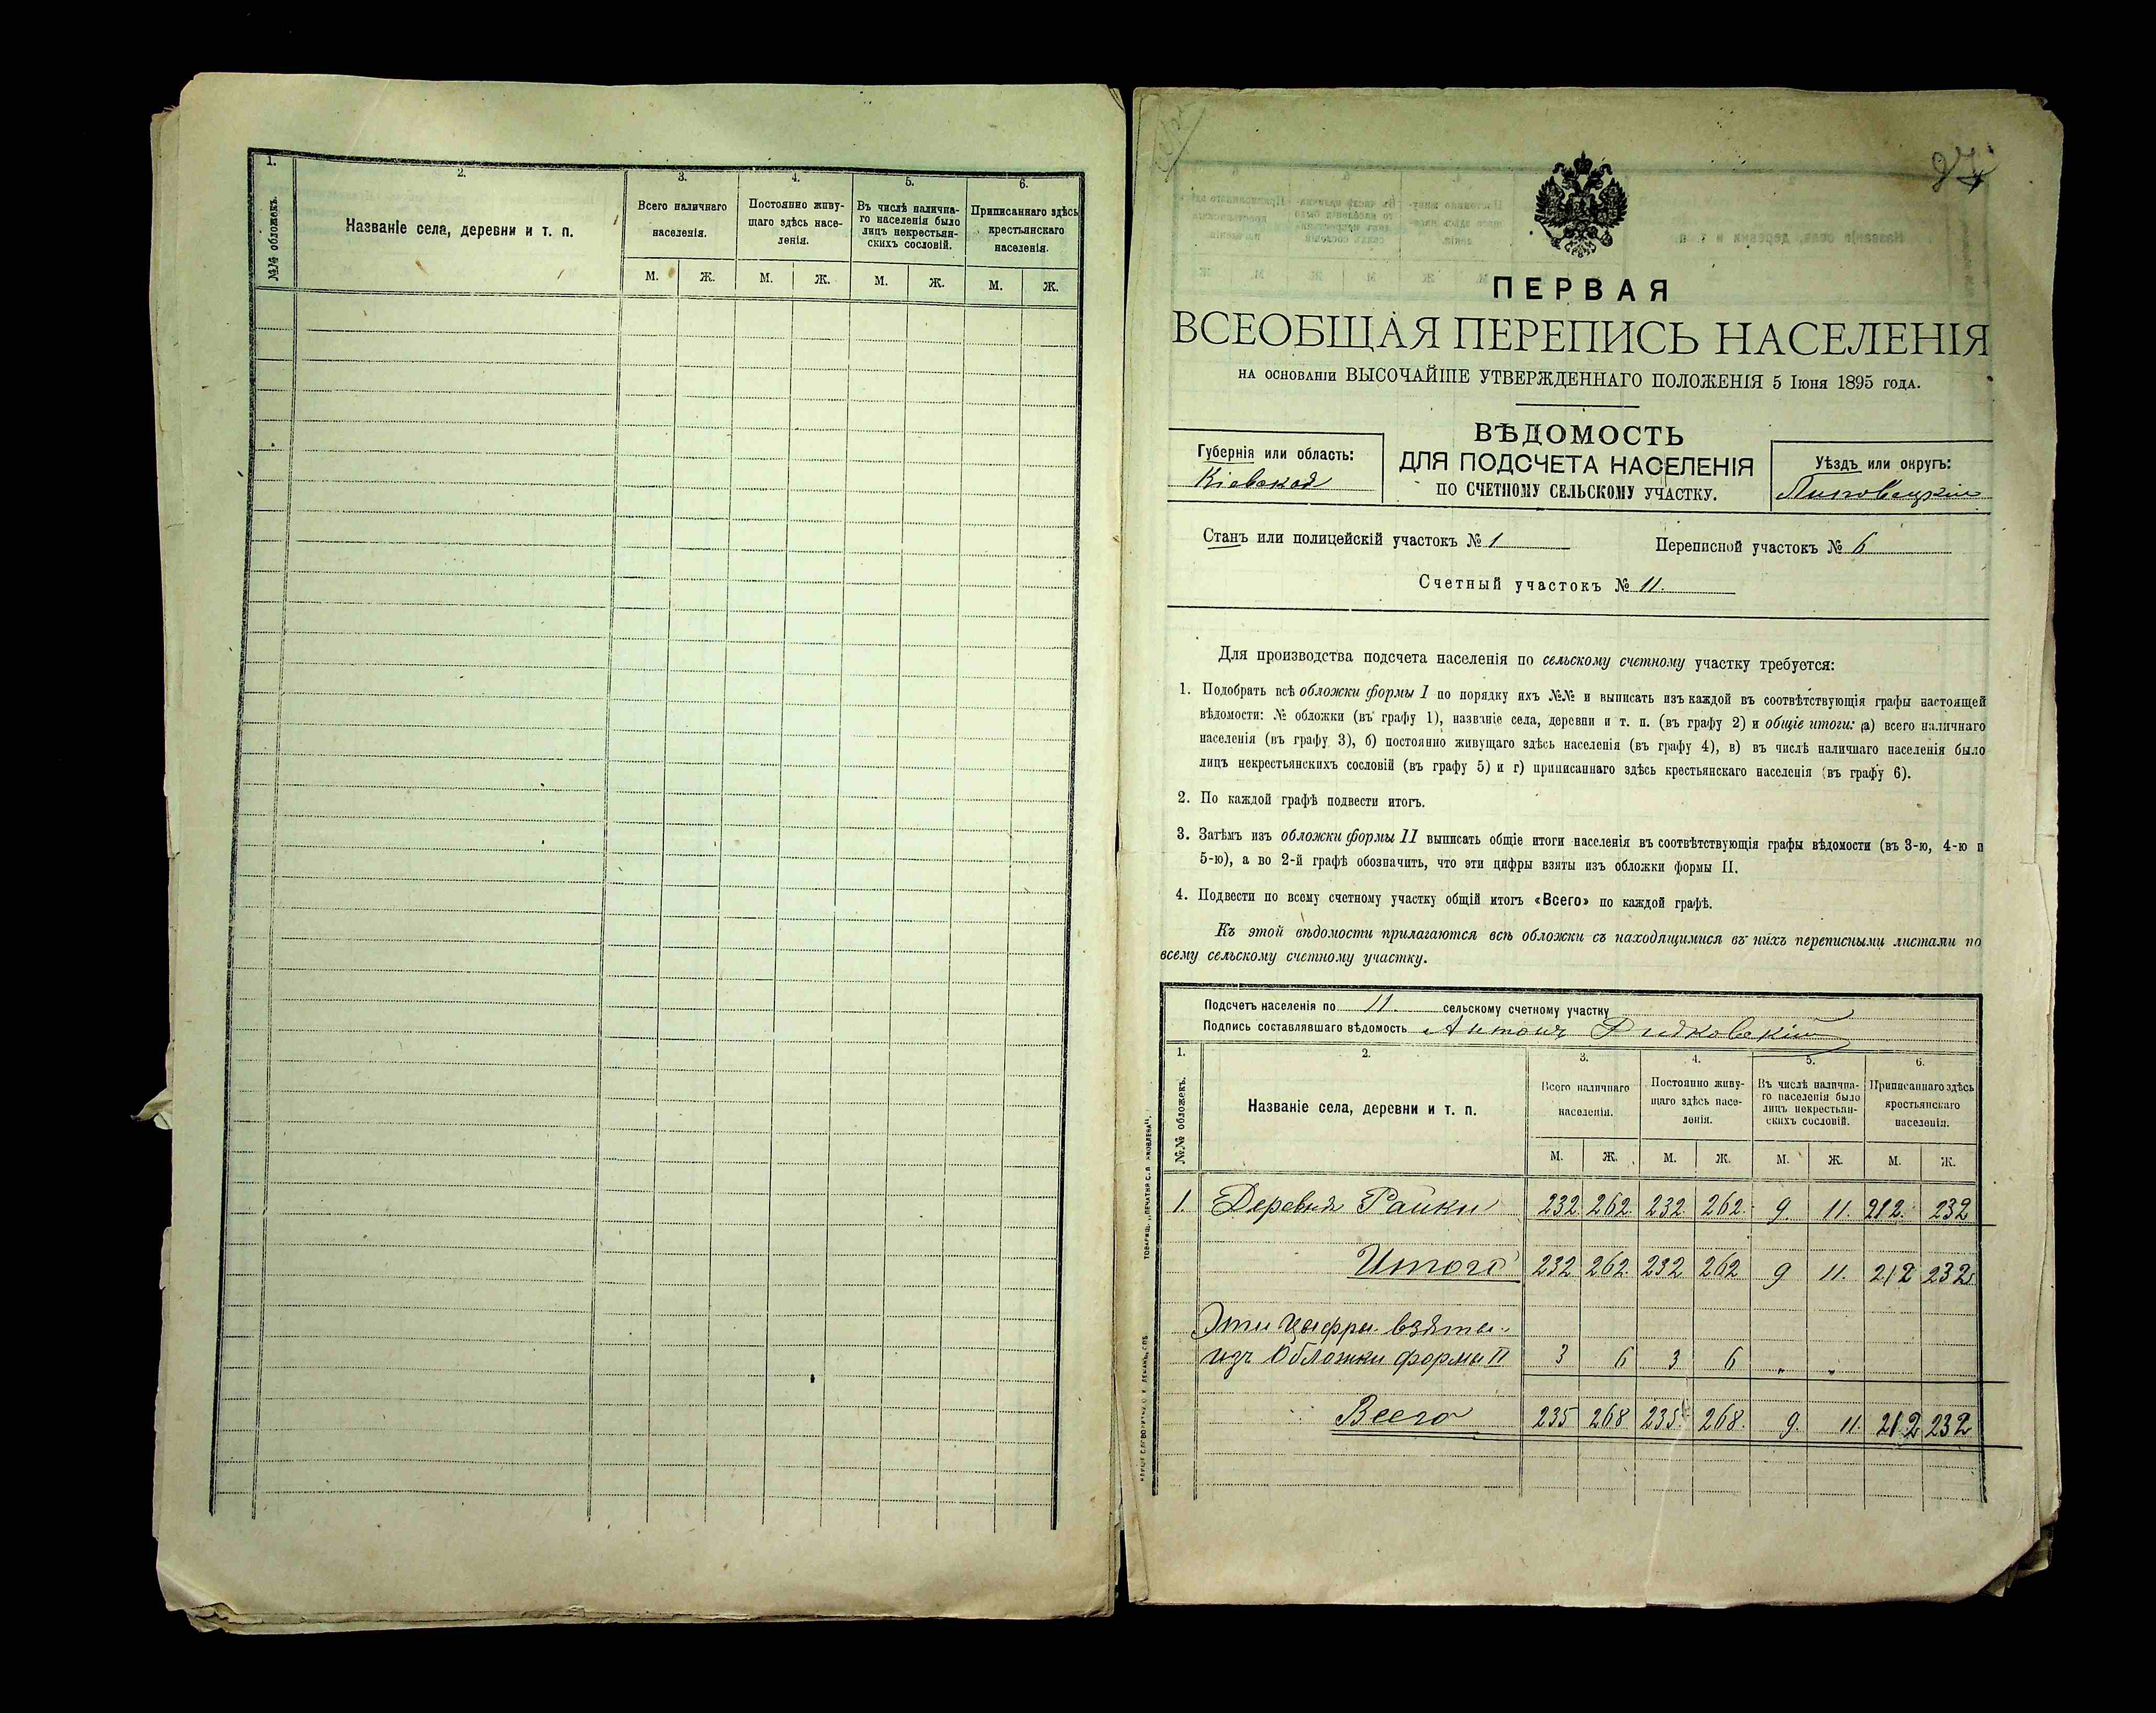 1.
2.
3.
4.
5.
6.
№№ обложекъ.
Названіе села, деревни и т. п.
Всего наличнаго
населенія.
Постоянно живу-
щаго здѣсь насе-
ленія.
Въ числѣ налична-
го населенія было
лицъ некрестьян-
скихъ сословій.
Приписаннаго здѣсь
крестьянскаго
населенія.
М. Ж. М. Ж. М. Ж. М. Ж.
ПЕРВАЯ
ВСЕОБЩАЯ ПЕРЕПИСЬ НАСЕЛЕНІЯ
НА ОСНОВАНІИ ВЫСОЧАЙШЕ УТВЕРЖДЕННАГО ПОЛОЖЕНІЯ 5 Іюня 1895 ГОДА.
ВѢДОМОСТЬ
ДЛЯ ПОДСЧЕТА НАСЕЛЕНІЯ
ПО СЧЕТНОМУ СЕЛЬСКОМУ УЧАСТКУ.
Губернія или область:
Кіевская
Уѣздъ или округъ:
Липовецкій
Станъ или полицейскій участокъ № 1
Переписной участокъ № 6
Счетный участокъ № 11.
Для производства подсчета населенія по сельскому счетному участку требуется:
1. Подобрать всѣ обложки формы I по порядку ихъ №№ и выписать изъ каждой въ соотвѣтствующія графы настоящей
вѣдомости: № обложки (въ графу 1), названіе села, деревни и т. п. (въ графу 2) и общіе итоги: а) всего наличнаго
населенія (въ графу 3), б) постоянно живущаго здѣсь населенія (въ графу 4), в) въ числѣ наличнаго населенія было
лицъ некрестьянскихъ сословій (въ графу 5) и г) приписаннаго здѣсь крестьянскаго населенія (въ графу 6).
2. По каждой графѣ подвести итогъ.
3. Затѣмъ изъ обложки формы II выписать общіе итоги населенія въ соотвѣтствующія графы вѣдомости (въ 3-ю, 4-ю и
5-ю), а во 2-й графѣ обозначить, что эти цифры взяты изъ обложки формы II.
4. Подвести по всему счетному участку общій итогъ «Всего» по каждой графѣ.
Къ этой вѣдомости прилагаются всѣ обложки съ находящимися въ нихъ переписными листами по
всему сельскому счетному участку.
Подсчетъ населенія по 11. сельскому счетному участку
Подпись составлявшаго вѣдомость Антонъ
1.
2.
3.
4.
5.
6.
№№ обложекъ.
Названіе села, деревни и т. п.
Всего наличнаго
населенія.
Постоянно живу-
щаго здѣсь насе-
ленія.
Въ числѣ налична-
го населенія было
лицъ некрестьян-
скихъ сословій.
Приписаннаго здѣсь
крестьянскаго
населенія.
М. Ж. М. Ж. М. Ж. М. Ж.
1. Деревня Райки 232 262 232 262 9. 11. 212. 232
Итого 232 262 232 262 9 11. 212 232
Эти цыфры взяты
изъ обложки формы II 3 6 3 6 „ „
Всего 235 268 235 268. 9. 11. 212 232